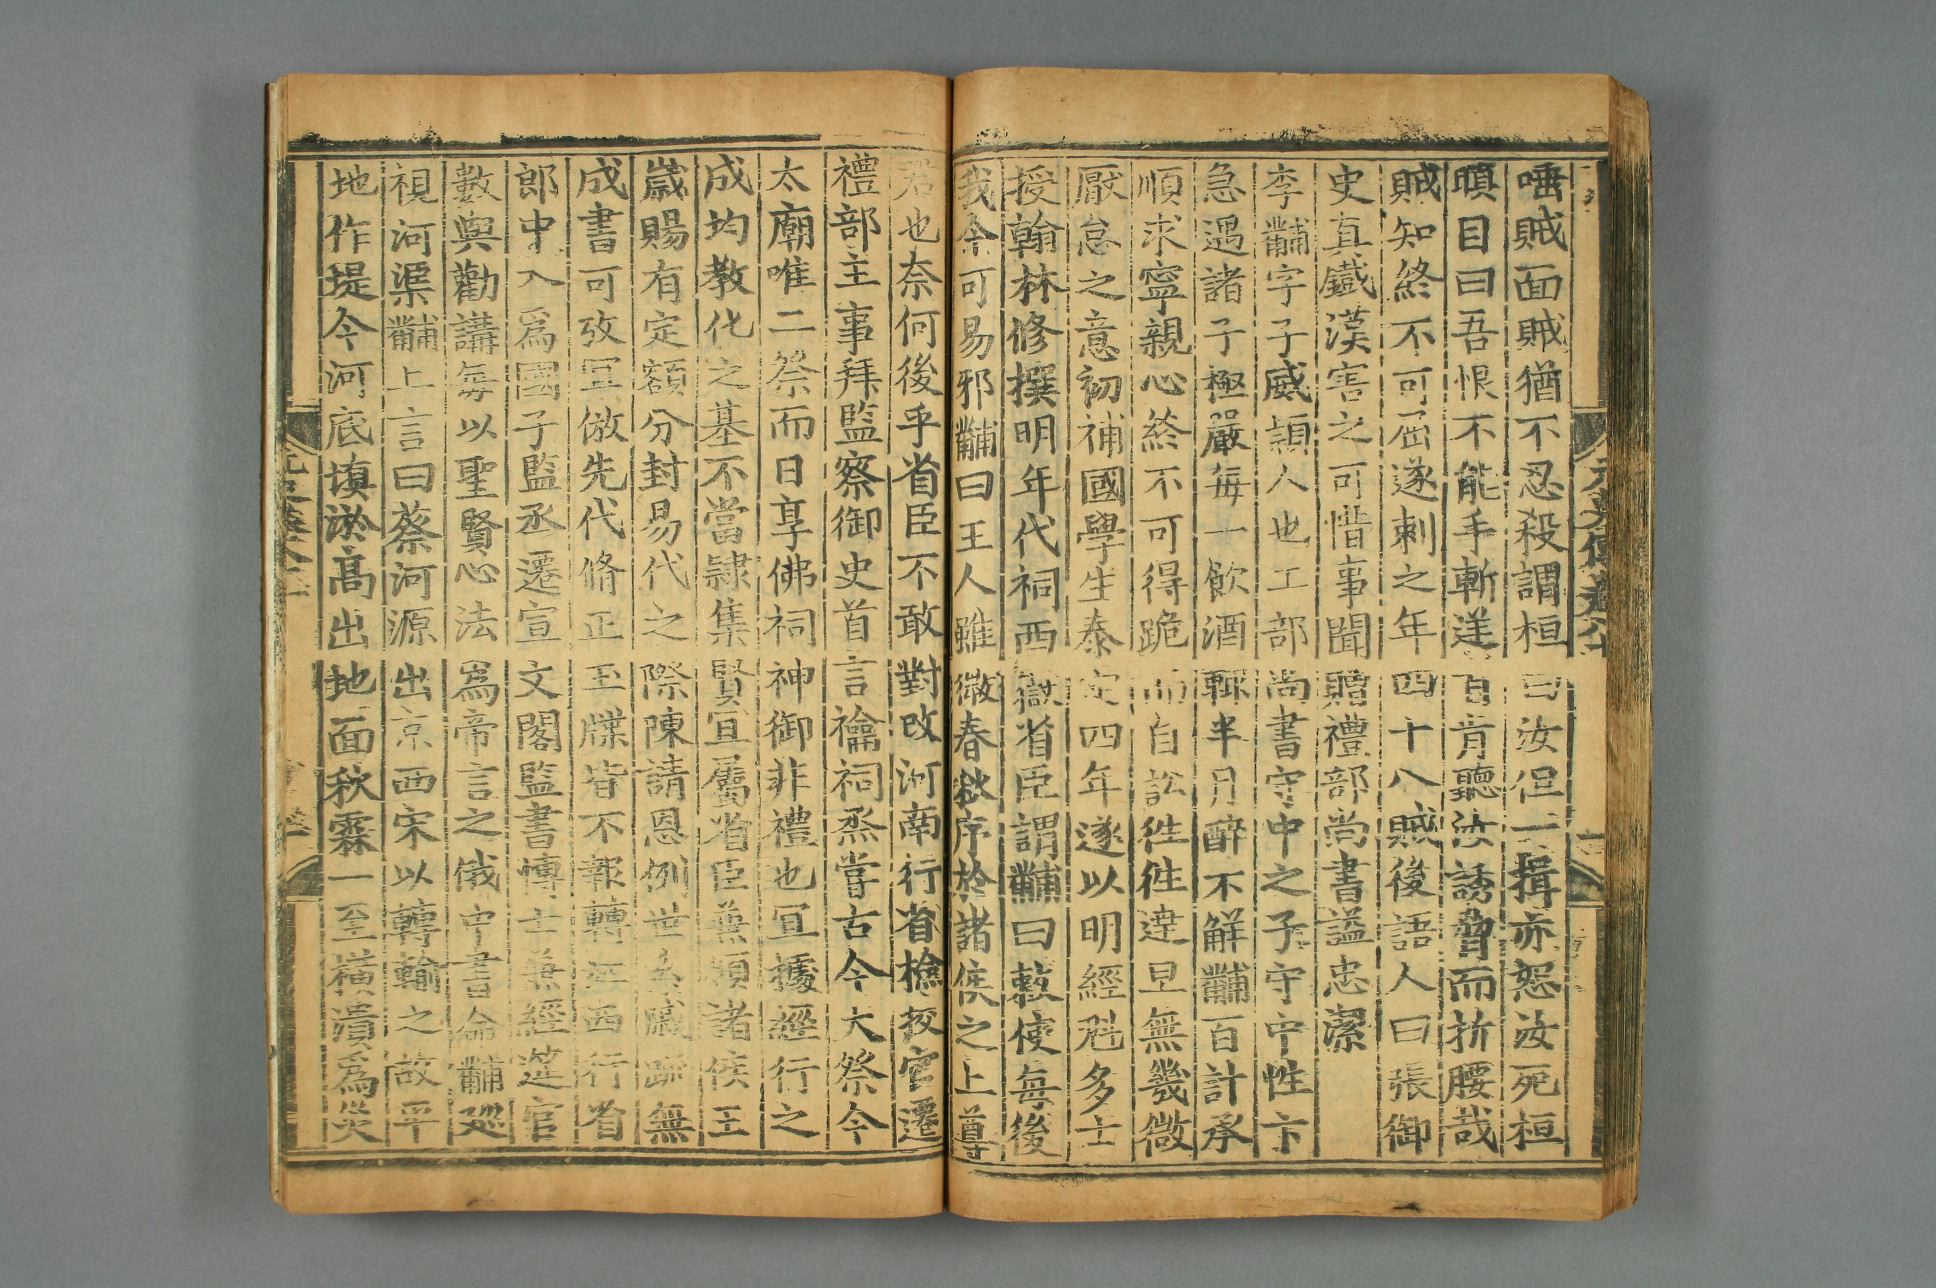 唾賊面賊猶不忍殺謂桓曰汝但一揖亦恕汝死桓
瞋目曰吾恨不能手斬逆首肯聽汝誘脅而折腰哉
賊知終不可屈遂刺之年四十八賊後語人曰張御
史真鐵漢害之可惜事聞贈禮部尚書謚忠潔
李黼字子威潁人也工部尚書守中之子守中性卞
急遇諸子極嚴每一飲酒輒半月醉不解黼百計承
順求寧親心終不可得跪而自訟往往達旦無幾微
厭怠之意初補國學生泰定四年遂以明經魁多士
授翰林修撰明年代祠西嶽省臣謂黼曰敕使每後
我今可易邪黼曰王人雖微春秋序於諸侯之上尊
君也奈何後乎省臣不敢對改河南行省檢校官遷
禮部主事拜監察御史首言禴祠烝嘗古今大祭今
太廟唯二祭而日享佛祠神御非禮也宜據經行之
成均教化之基不當隸集賢宜屬省臣兼領諸侯王
歲賜有定額分封易代之際陳請恩例世系戚疏無
成書可攷宜倣先代脩正玉牒皆不報轉江西行省
郎中入爲國子監丞遷宣文閣監書博士兼經筵官
數與勸講每以聖賢心法爲帝言之俄中書命黼廵
視河渠黼上言曰蔡河源出京西宋以轉輸之故平
地作堤今河底填淤高出地面秋霖一至橫潰爲災